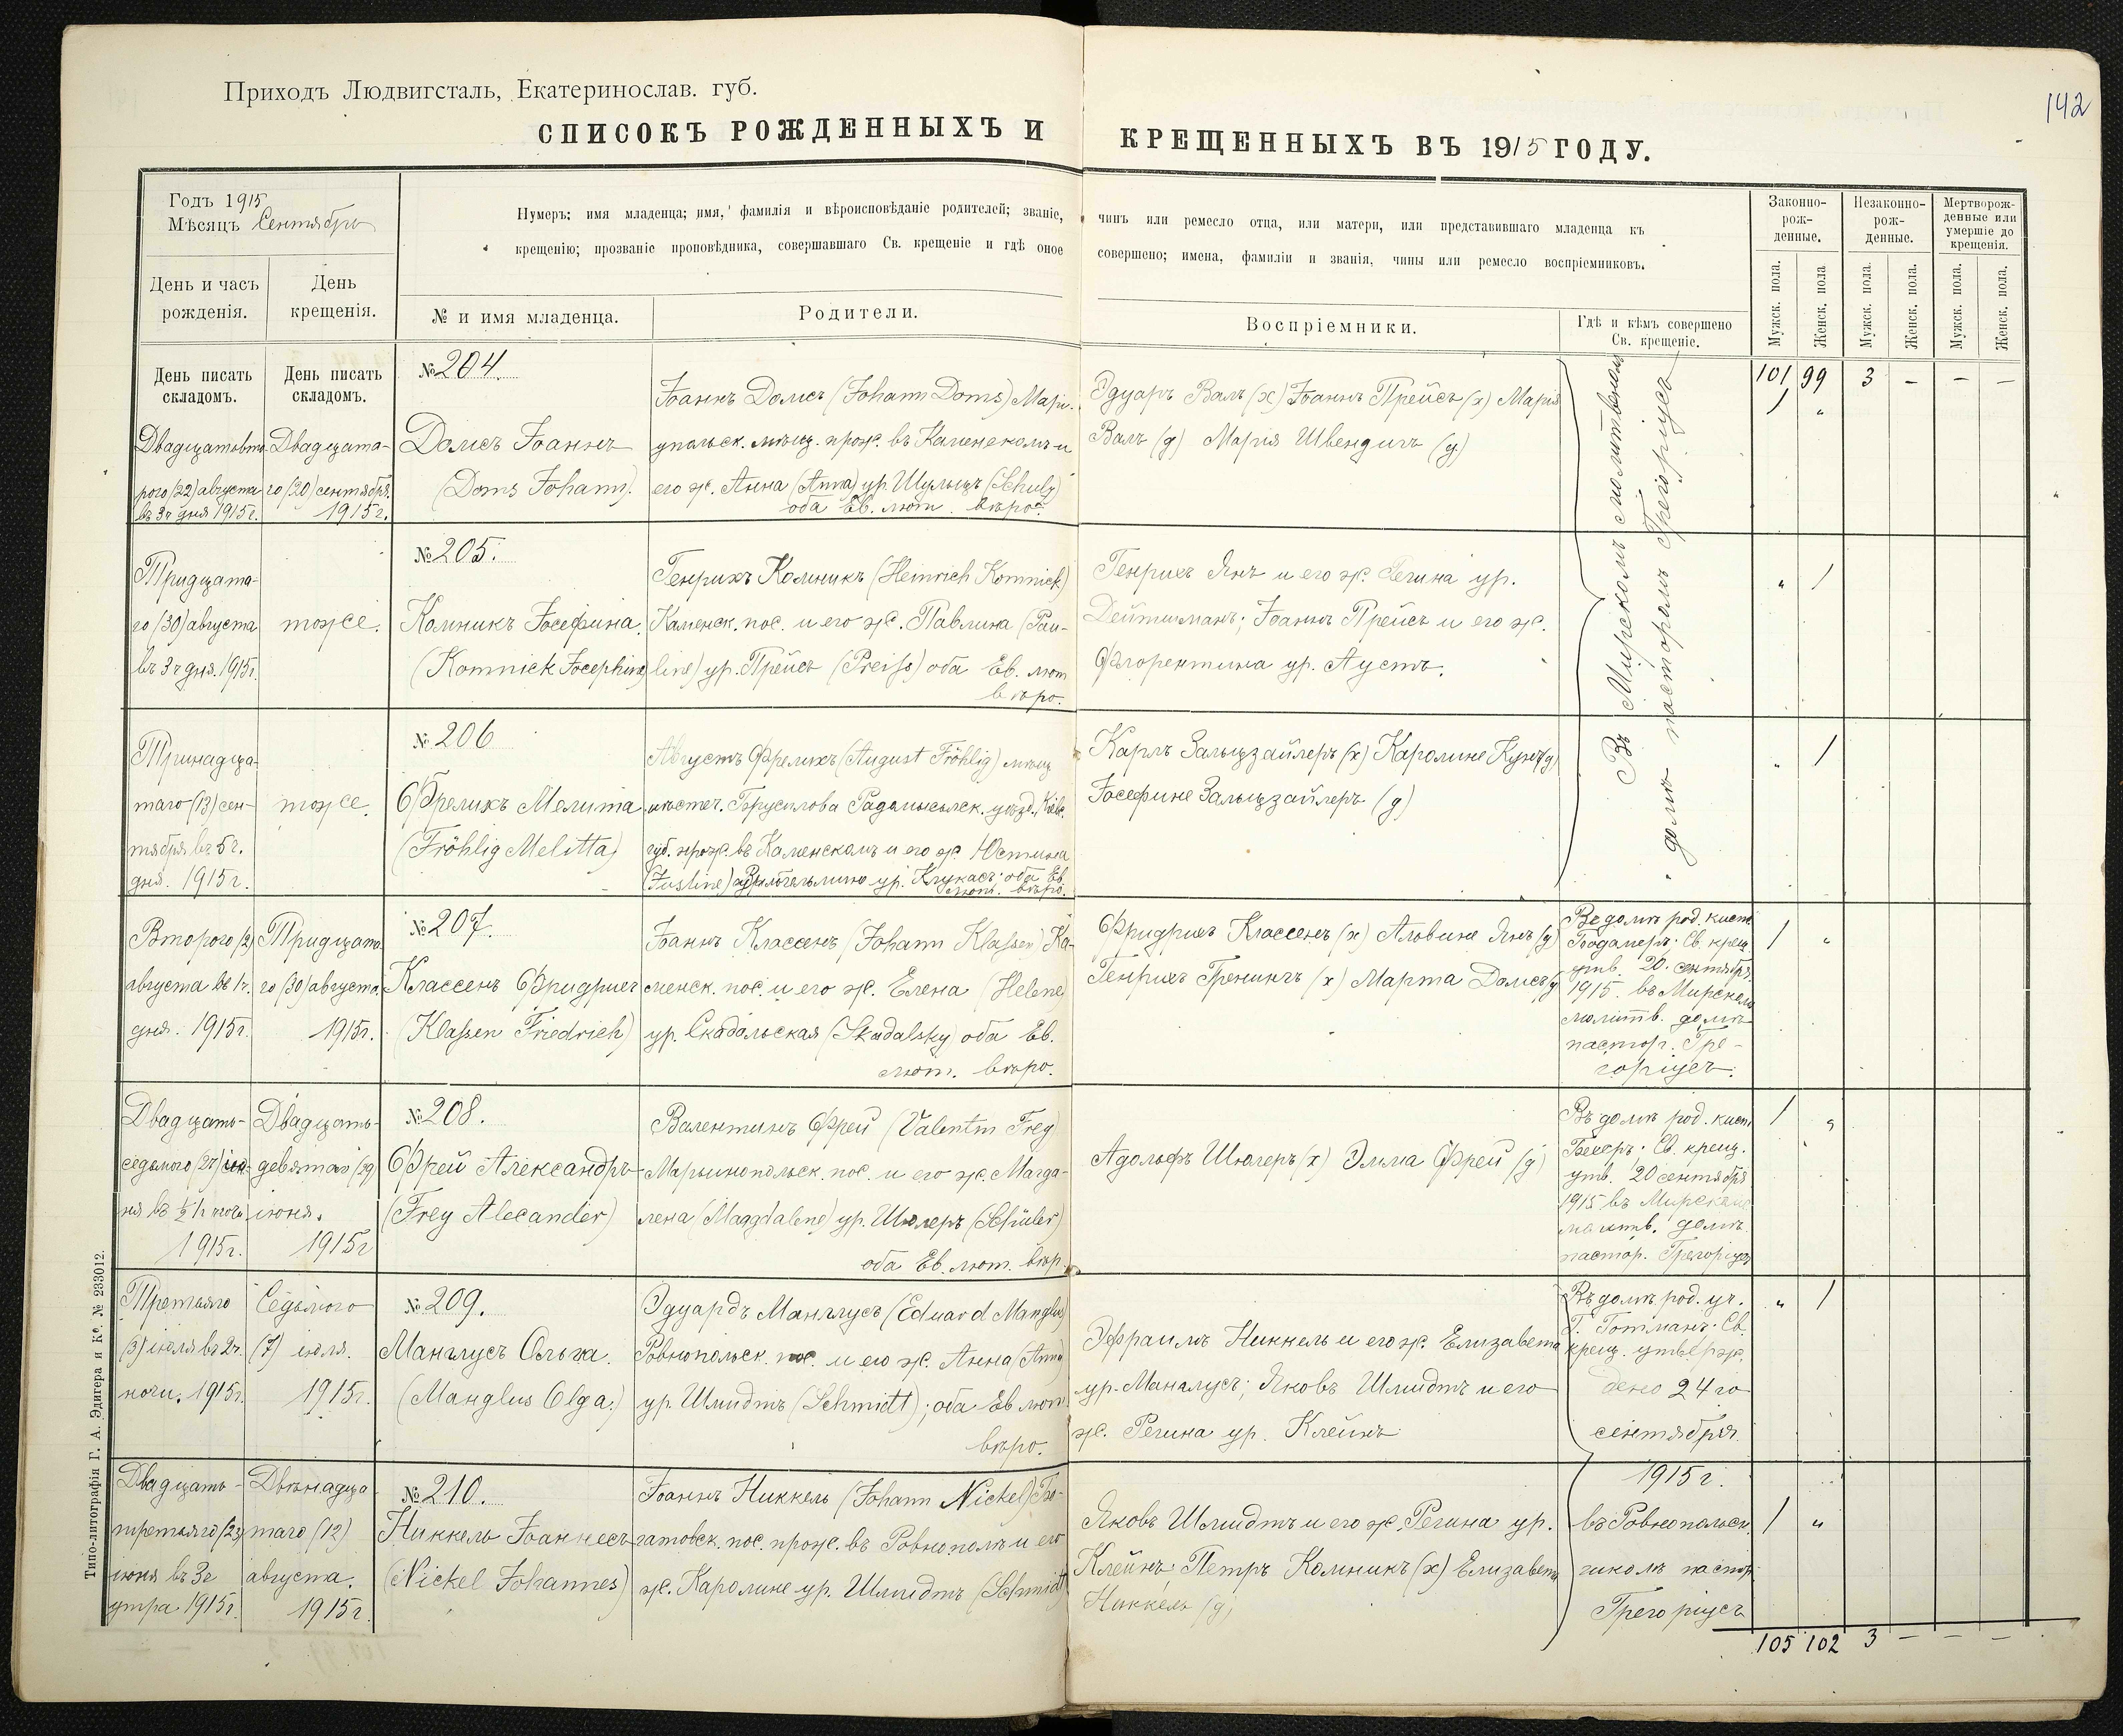 142
Приходъ Людвигсталь, Екатеринослав. губ.
СПИСОКЪ РОЖДЕННЫХЪ И КРЕЩЕННЫХЪ ВЪ 1915 ГОДУ.
Годъ 1915
Мѣсяцъ Сентябрь
Нумеръ; имя младенца; имя, фамилія и вѣроисповѣданіе родителей; званіе, чинъ или ремесло отца, или матери, или представившаго младенца къ
крещенію; прозваніе проповѣдника, совершавшаго Св. крещеніе и гдѣ оное совершено; имена, фамиліи и званія, чины или ремесло воспріемниковъ.
День и часъ
рожденія.
День
крещенія.
№ и имя младенца.
Родители.
Воспріемники.
Гдѣ и кѣмъ совершено
Св. крещеніе.
Законно-
рож-
денные.
Незаконно-
рож-
денные.
Мертворож-
денные или
умершіе до
крещенія.
Мужск. пола.
Женск. пола
Мужск. пола.
Женск. пола.
Мужск. пола.
Женск. пола.
День писать
складомъ.
День писать
складомъ.
101 99 3 - - -
Двадцатовто-
рого (22) августа
въ 3ч дня 1915г.
Двадцата-
го (20) сентября.
1915г.
№ 204.
Домсъ Іоаннъ
(Doms Johann).
Іоаннъ Домсъ (Johann Doms) Маріу-
польск. мѣщ. прож. въ Каменскомъ и
его ж. Анна (Anna) ур. Шульцъ (Schulz)
оба Ев. лют. вѣро.
Эдуаръ Валъ (х) Іоаннъ Прейсъ (х) Марія
Валъ (д) Марія Швендичъ (д)
Въ Мирскомъ молитвенномъ
домѣ пасторомъ Грегоріусъ
1 "
Тридцата-
го (30) августа
въ 3ч дня. 1915г.
тоже.
№ 205.
Комникъ Іосефина.
(Komnick Josephine)
Генрихъ Комникъ (Heinrich Komnick)
Каменск. пос. и его ж. Павлина (Pau-
line) ур. Прейсъ (Preiss) оба Ев. лют
вѣро.
Генрихъ Янъ и его ж. Регина ур.
Дейтшманъ; Іоаннъ Прейсъ и его ж.
Флорентина ур. Аустъ.
" 1
Тринадца-
таго (13) сен-
тября въ 5ч.
дня. 1915г.
тоже.
№ 206
Фреликъ Мелита
(Fröhlig Melitta)
Августъ Фреликъ (August Fröhlig) мѣщ
мѣстеч. Брусилова Радомысльск. уѣзд. Кіев.
губ. прож. въ Каменскомъ и его ж. Юстина
(Justine) ур. Клукасъ; оба Ев.
лют. вѣро.
Карлъ Зальцзайлеръ (х) Каролине Кунъ (д)
Іосефине Зальцзайлеръ (д)
" 1
Второго (2)
августа въ 1ч.
дня. 1915г.
Тридцата-
го (30) августа.
1915г.
№ 207.
Классенъ Фридрихъ
(Klassen Friedrich)
Іоаннъ Классенъ (Johann Klassen) Ка-
менск. пос. и его ж. Елена (Helene)
ур. Скадальская (Skadalsky) оба Ев.
лют. вѣро.
Фридрихъ Классенъ (х) Альвине Янъ (д)
Генрихъ Гренингъ (х) Марта Домсъ (д)
Въ домѣ род. кист.
Бодамеръ; Св. крещ.
утв. 20. сентября
1915. въ Мирском
молитв. домѣ
пастор. Гре-
горіусъ.
1 "
Двадцать-
седьмого (27) іюн-
ня въ ½ 1ч ночи
1915г.
Двадцать-
девятаго (29)
іюня.
1915г
№ 208.
Фрей Александръ
(Frey Alecander)
Валентинъ Фрей (Valentin Frey)
Марьинопольск. пос. и его ж. Магда-
лена (Maggdalene) ур. Шюлеръ (Schüler)
оба Ев. лют. вѣр.
Адольфъ Шюлеръ (х) Эмма Фрей (д)
Въ домѣ род. кист
Бееръ; Св. крещ.
утв. 20 сентября
1915 въ Мирском
молитв. домѣ
пастор. Грегоріусъ
1 "
Третьяго
(3) іюля въ 2ч.
ночи. 1915г.
Седьмого
(7) іюля.
1915г.
№ 209.
Манглусъ Ольга.
(Manglus Olga.)
Эдуардъ Манглусъ (Eduard Manglus)
Ровнопольск. пос. и его ж. Анна (Anna)
ур. Шмидтъ (Schmidt); оба Ев лют
вѣро.
Эфраимъ Никкель и его ж. Елизавета
ур. Манглусъ; Яковъ Шмидтъ и его
ж. Регина ур. Клейнъ
Въ домѣ род. уч.
Г. Готманъ; Св.
крещ. утверж.
дено 24 го
сентября
1915г.
" 1
Двадцать-
третьяго (23)
іюня въ 3ч
утра 1915г.
Двѣнадца-
таго (12)
августа.
1915г.
№ 210.
Никкель Іоаннесъ
(Nickel Johannes)
Іоаннъ Никкель (Johann Nickel) Бо-
гатовск. пос. прож. въ Ровнополѣ и его
ж. Каролине ур. Шмидтъ (Schmidt)
Яковъ Шмидтъ и его ж. Регина ур.
Клейнъ; Петръ Комникъ (х) Елизавета
Никкель (д)
въ Ровнопольск.
школѣ пастор
Грегоріусъ
1 "
105 102 3 - - -
Типо-литографія Г. А. Эдигера и Ко. № 233012.